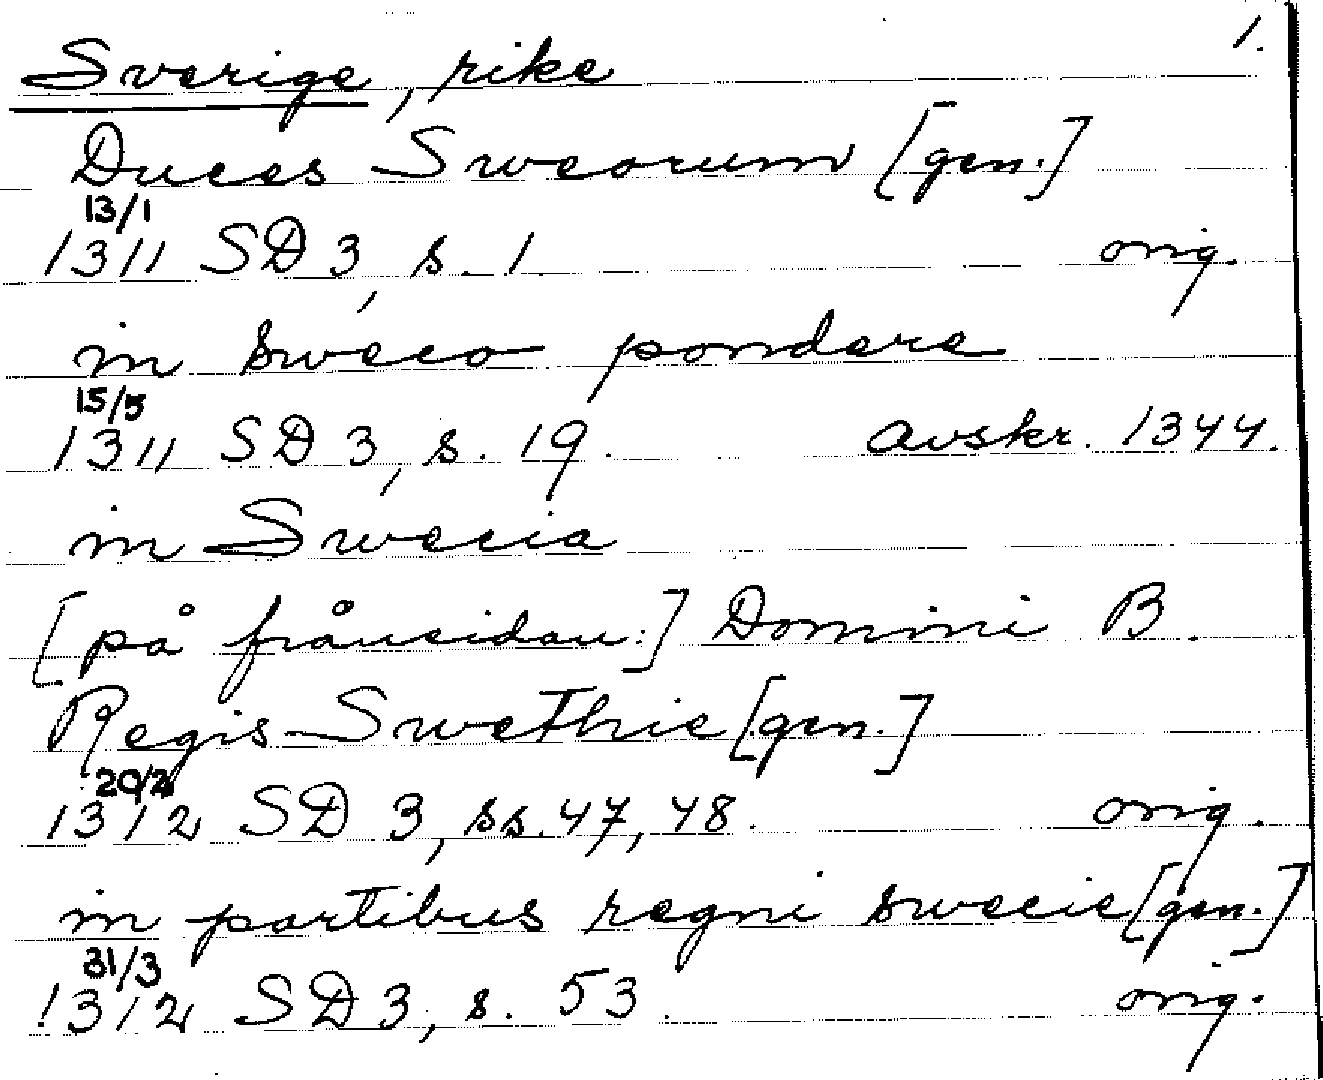 1.
Sverige, rike
Duces Sweorum [gen.]
13/1
1311 SD 3, s. 1. orig.
in sweco pondere
15/5
1311 SD 3, s. 19. avskr. 1344.
in Swecia
[på frånsidan:] Domini B.
Regis Swethie [gen.]
20/2
1312 SD 3, ss. 47, 48. orig.
in partibus regni swecie [gen.]
31/3
1312 SD 3, s. 53. orig.